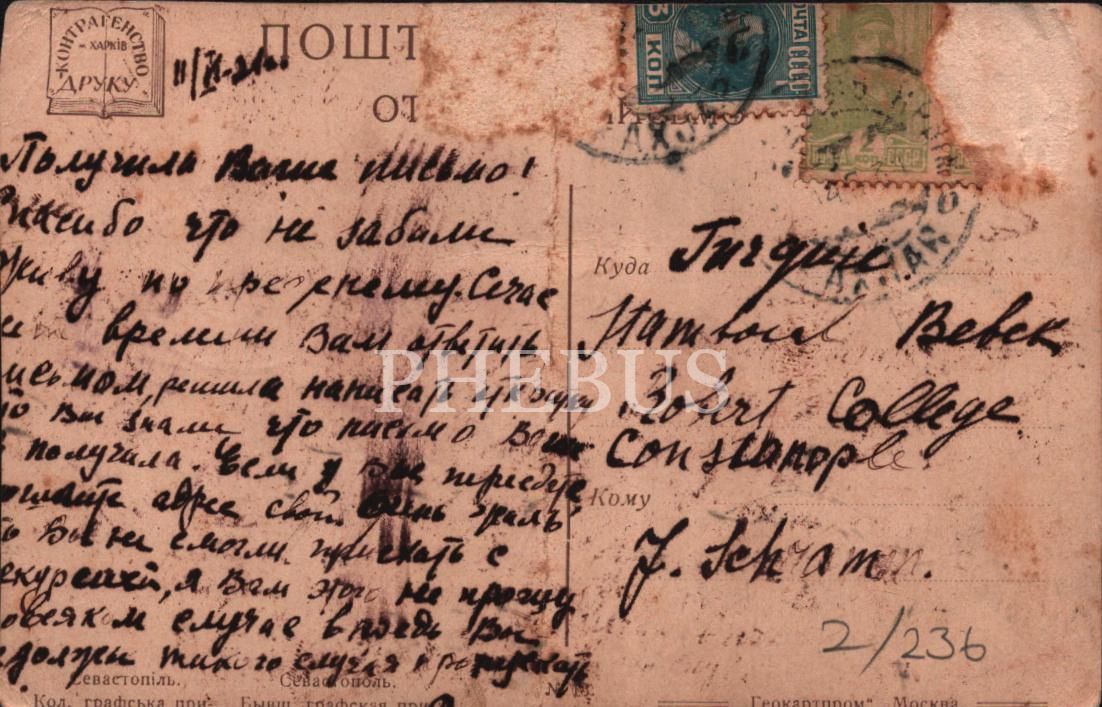 КОНТРАГЕНСТВО
ХАРКІВ
ДРУКУ
ПОШТ
КОП.
ПОЧТА СССР
Получила Ваше письмо!
Спасибо что не забыли
Живу по прежнему. Сечас
времени Вам ответить
письмом, решила написать
Вы знали что письмо Ваше
получила. Если Вы переедете
адрес свой очень жаль
Вы не смогли приехать с
екурсией, я Вам этого не прощу
во всяком случае впредь Вы
должны такого случая пропускать
Куда Turquie
Stamboul Bebek
Robert College
Constanople.
Кому
J. Schramm.
2/236
PHEBUS
Севастопіль. Севастополь.
Кол. графська при- Бывш. графская при
„Геокартпром" Москва